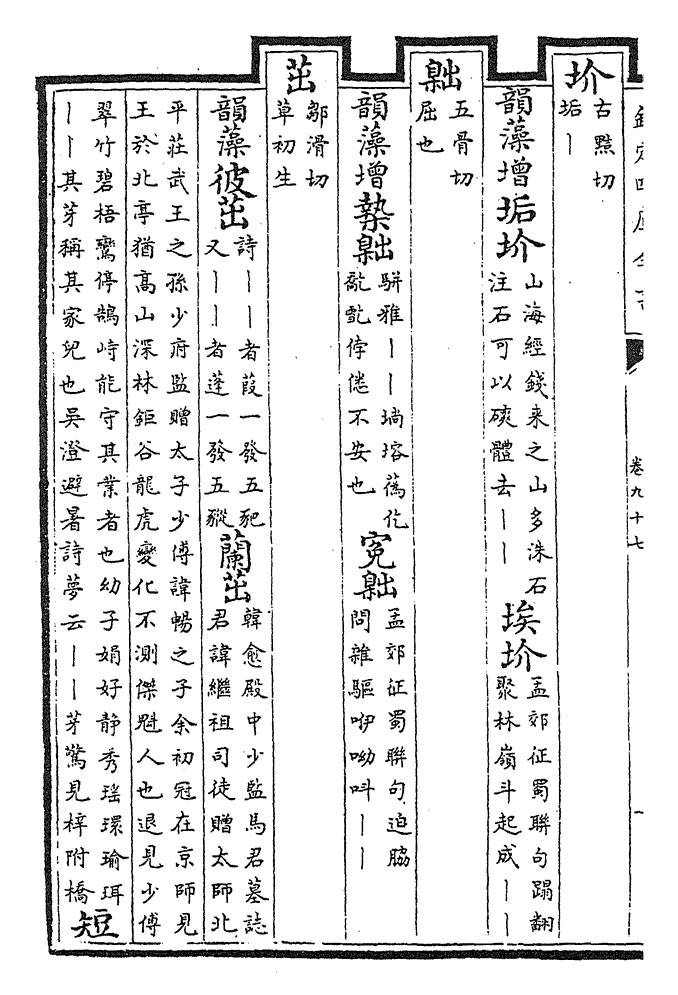 欽定四庫全書
卷九十七
一
圿
古黠切
垢丨
韻藻增垢圿
山海經錢来之山多洙石
注石可以磢體去丨丨
埃圿
孟郊征蜀聯句蹋翻
聚林嶺斗起成丨丨
五骨切
屈也
韻藻增
駢雅丨丨
悖倦不安也
孟郊征蜀聯句迫脇
問雜驅咿呦呌丨丨
茁
鄒滑切
草初生
韻藻彼茁
詩丨丨者葭一發五豝
又丨丨者蓬一發五豵
蘭茁
韓愈殿中少監馬君墓誌
君諱繼祖司徒贈太師北
平莊武王之孫少府監贈太子少傅諱暢之子余初冠在京師見
王於北亭猶髙山深林鉅谷龍虎變化不測傑魁人也退見少傅
翠竹碧梧鸞停鵠峙能守其業者也幼子娟好静秀瑶環瑜珥
丨丨其芽稱其家兒也吳澄避暑詩夢云丨丨芽驚見梓附橋
短